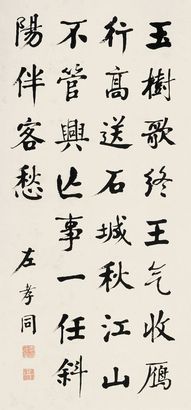 玉樹歌終王气收雁
行高送石城秋江山
不管興亡事一任斜
陽伴客愁
左孝同